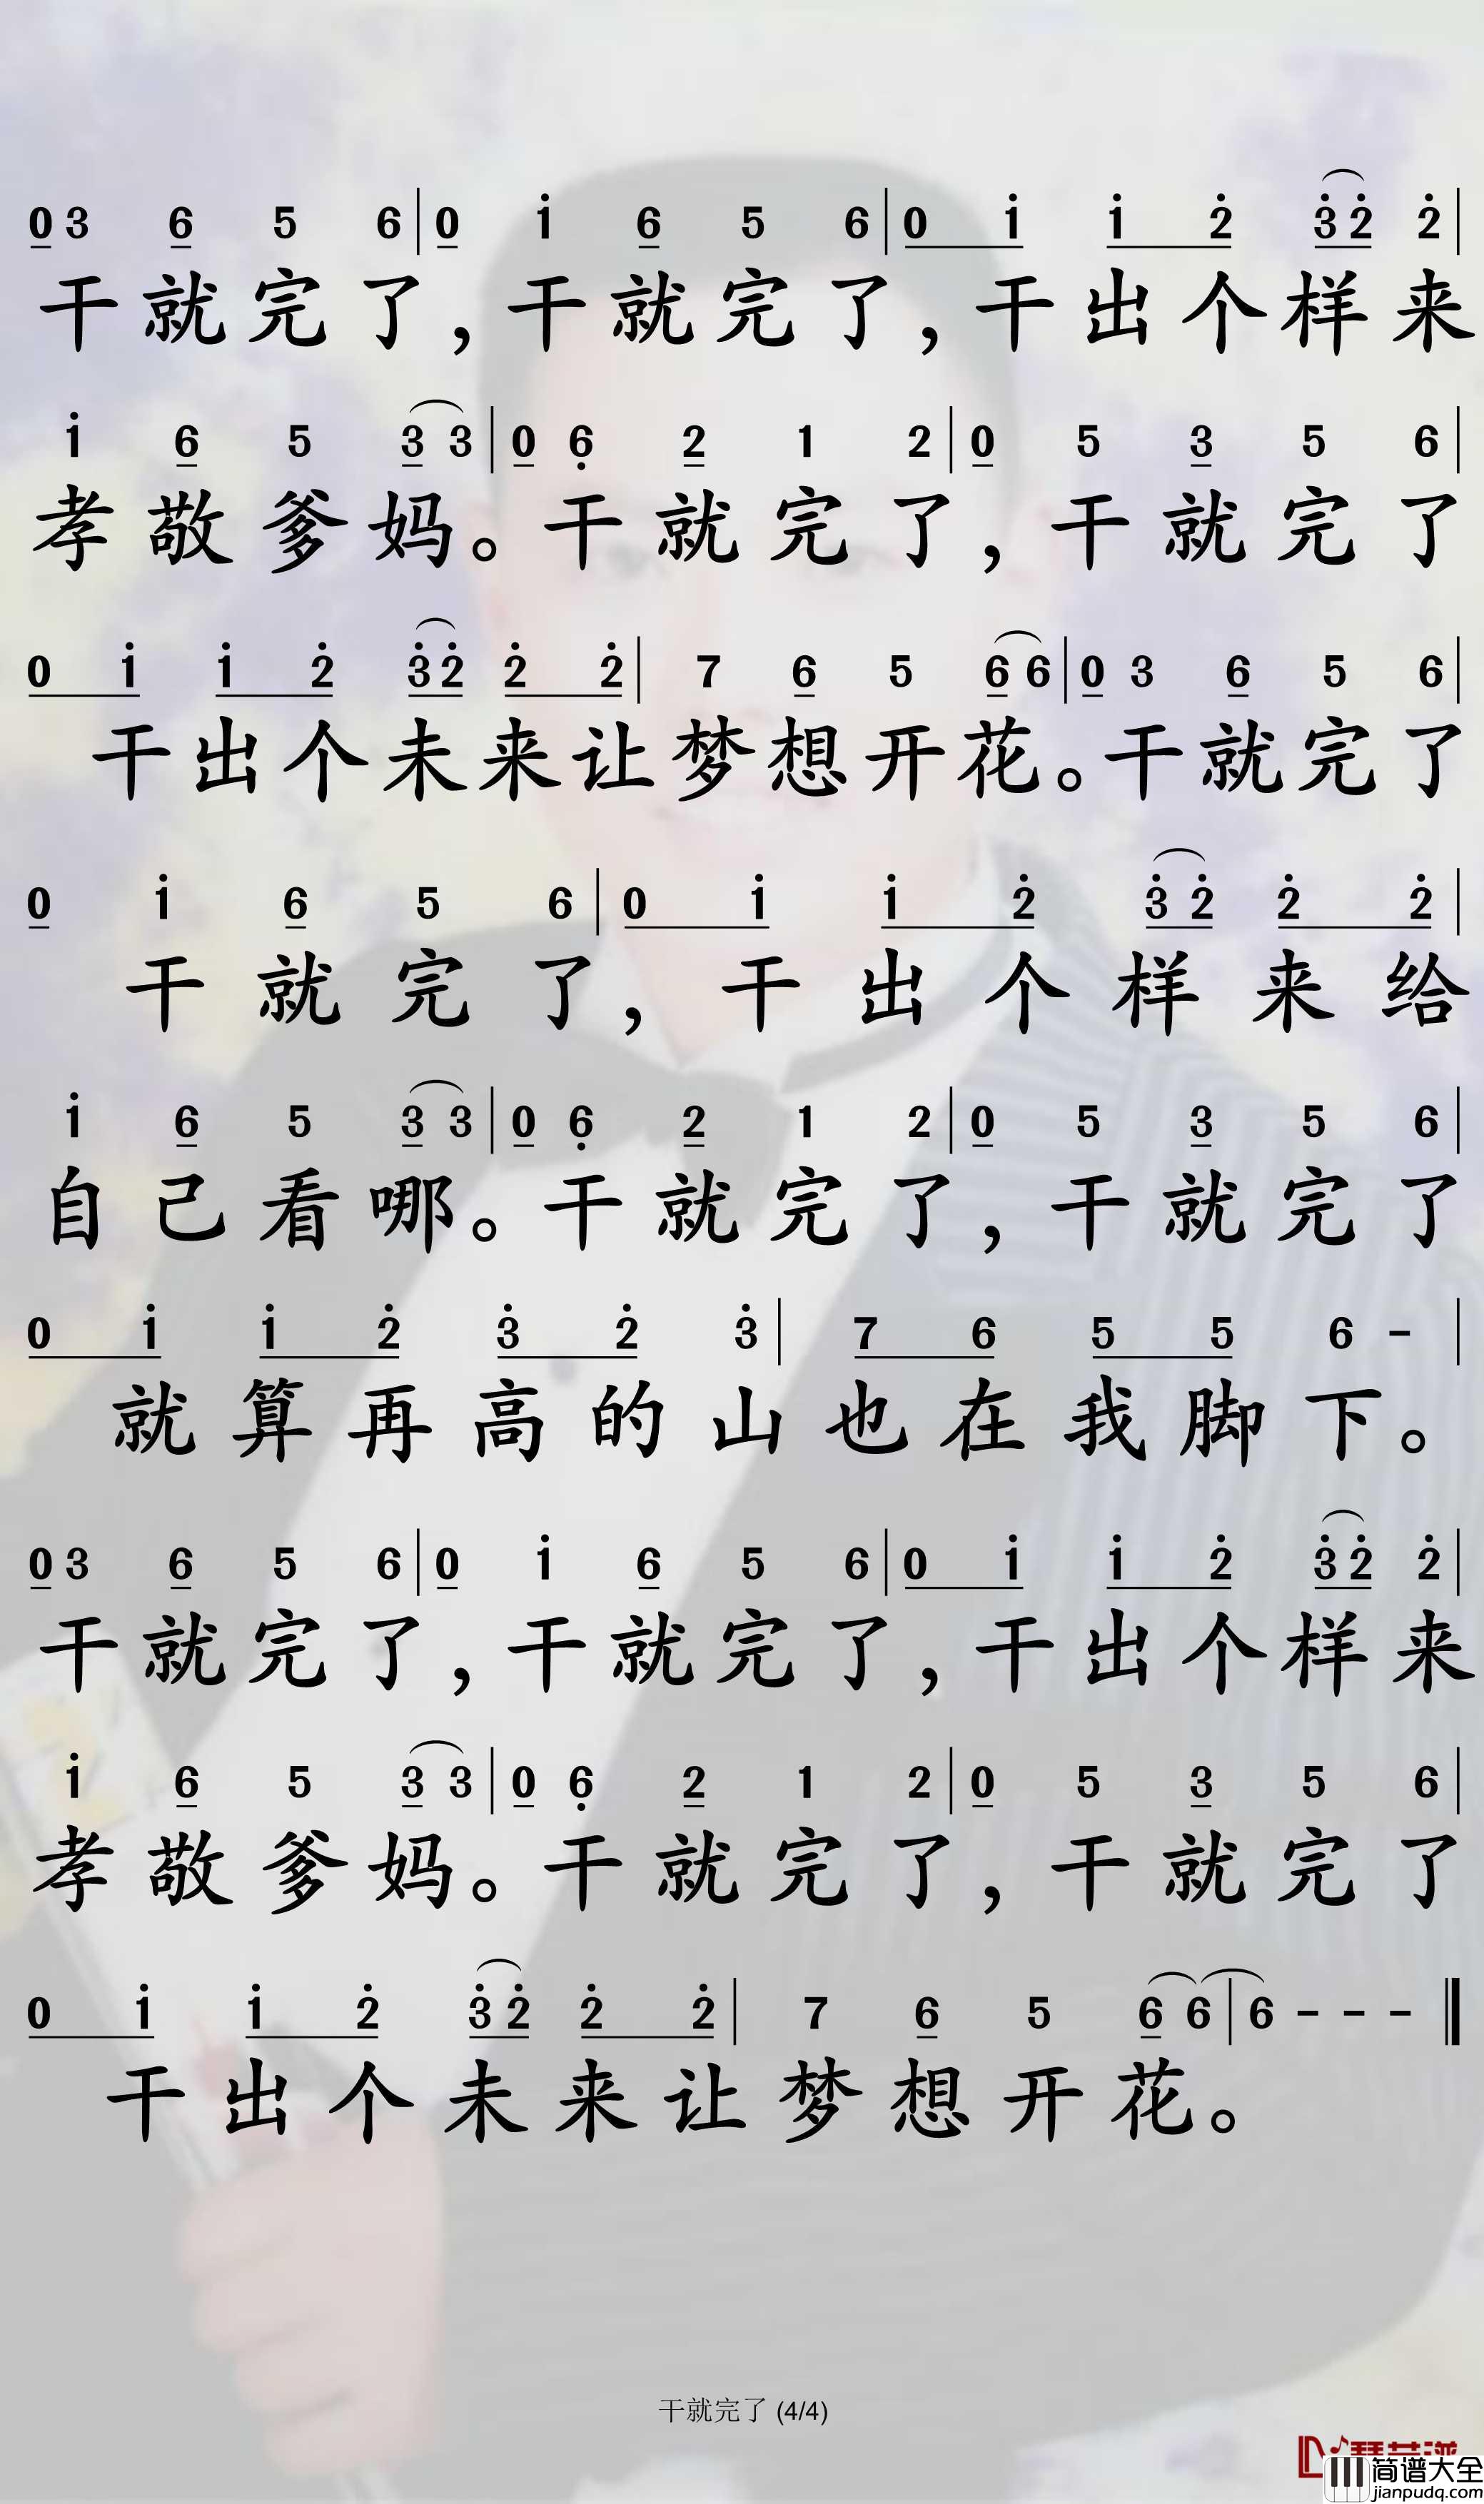 0 3 6 5 6 | 0 i 6 5 6 | 0 i i 2̇ 3̇ 2̇ 2̇ |
干就完了，干就完了，干出个样来
i 6 5 3 3 | 0 6̣ 2 1 2 | 0 5 3 5 6 |
孝敬爹妈。干就完了，干就完了
0 i i 2̇ 3̇ 2̇ 2̇ 2̇ | 7 6 5 6 6 | 0 3 6 5 6 |
干出个未来让梦想开花。干就完了
0 i 6 5 6 | 0 i i 2̇ 3̇ 2̇ 2̇ 2̇ |
干就完了，干出个样来给
i 6 5 3 3 | 0 6̣ 2 1 2 | 0 5 3 5 6 |
自己看哪。干就完了，干就完了
0 i i 2̇ 3̇ 2̇ 3̇ | 7 6 5 5 6 - |
就算再高的山也在我脚下。
0 3 6 5 6 | 0 i 6 5 6 | 0 i i 2̇ 3̇ 2̇ 2̇ |
干就完了，干就完了，干出个样来
i 6 5 3 3 | 0 6̣ 2 1 2 | 0 5 3 5 6 |
孝敬爹妈。干就完了，干就完了
0 i i 2̇ 3̇ 2̇ 2̇ 2̇ | 7 6 5 6 6 | 6 - - - ‖
干出个未来让梦想开花。
干就完了 (4/4)
简谱大全
jianpudq.com